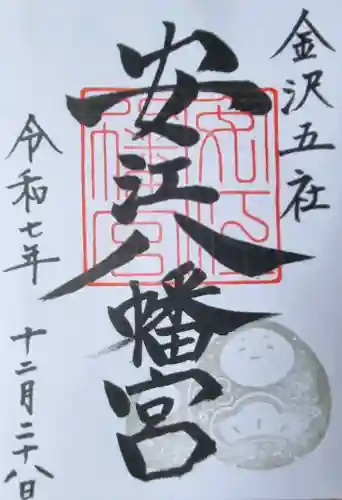 金沢五社
安江八幡宮
令和七年 十二月二十八日